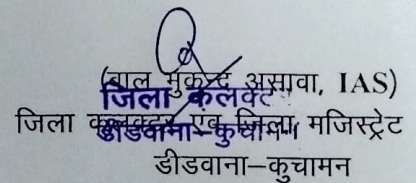 (बाल मुकन्द असावा, IAS)
जिला कलक्टर
जिला कलक्टर एवं जिला मजिस्ट्रेट
डीडवाना-कुचामन
डीडवाना–कुचामन